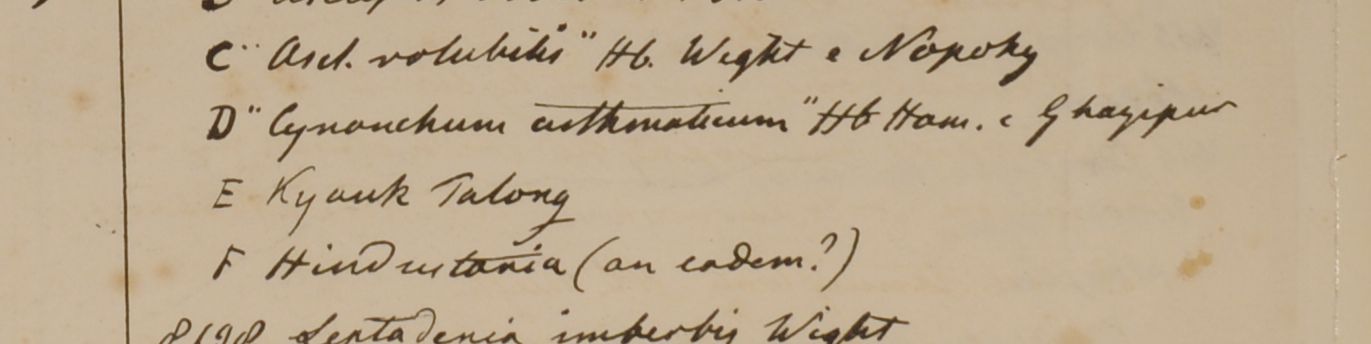 C "Ascl. volubilis" Hb. Wight e Nopoky
D "Cynanchum asthmaticum" Hb Ham. e Ghazipur
E Kyouk Talong
F Hindustania (an eadem?)
8198 Leptadenia imberbis Wight